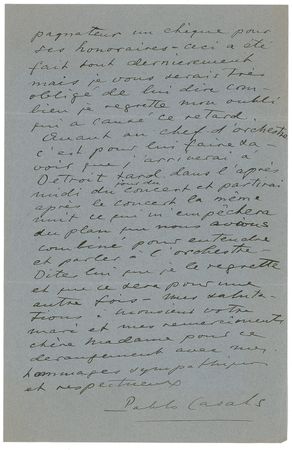 pagnateur un chèque pour
ses honoraires - ceci a été
fait tout dernièrement
mais je vous serais très
obligé de lui dire com-
bien je regrette mon oubli
qui a causé ce retard.
Quant au chef d'orchestre
c'est pour lui faire sa-
voir que j'arriverai à
Détroit tard dans l'après
midi du jour du concert et partirai
après le concert la même
nuit ce qui m'empêchera
du plan que nous avions
combiné pour entendre
et parler à l'orchestre
Dites lui que je le regrette
et que ce sera pour une
autre fois - mes saluta-
tions à monsieur votre
mari et mes remerciements
chère madame pour ce
dérangement avec mes
hommages sympathiques
et respectueux
Pablo Casals